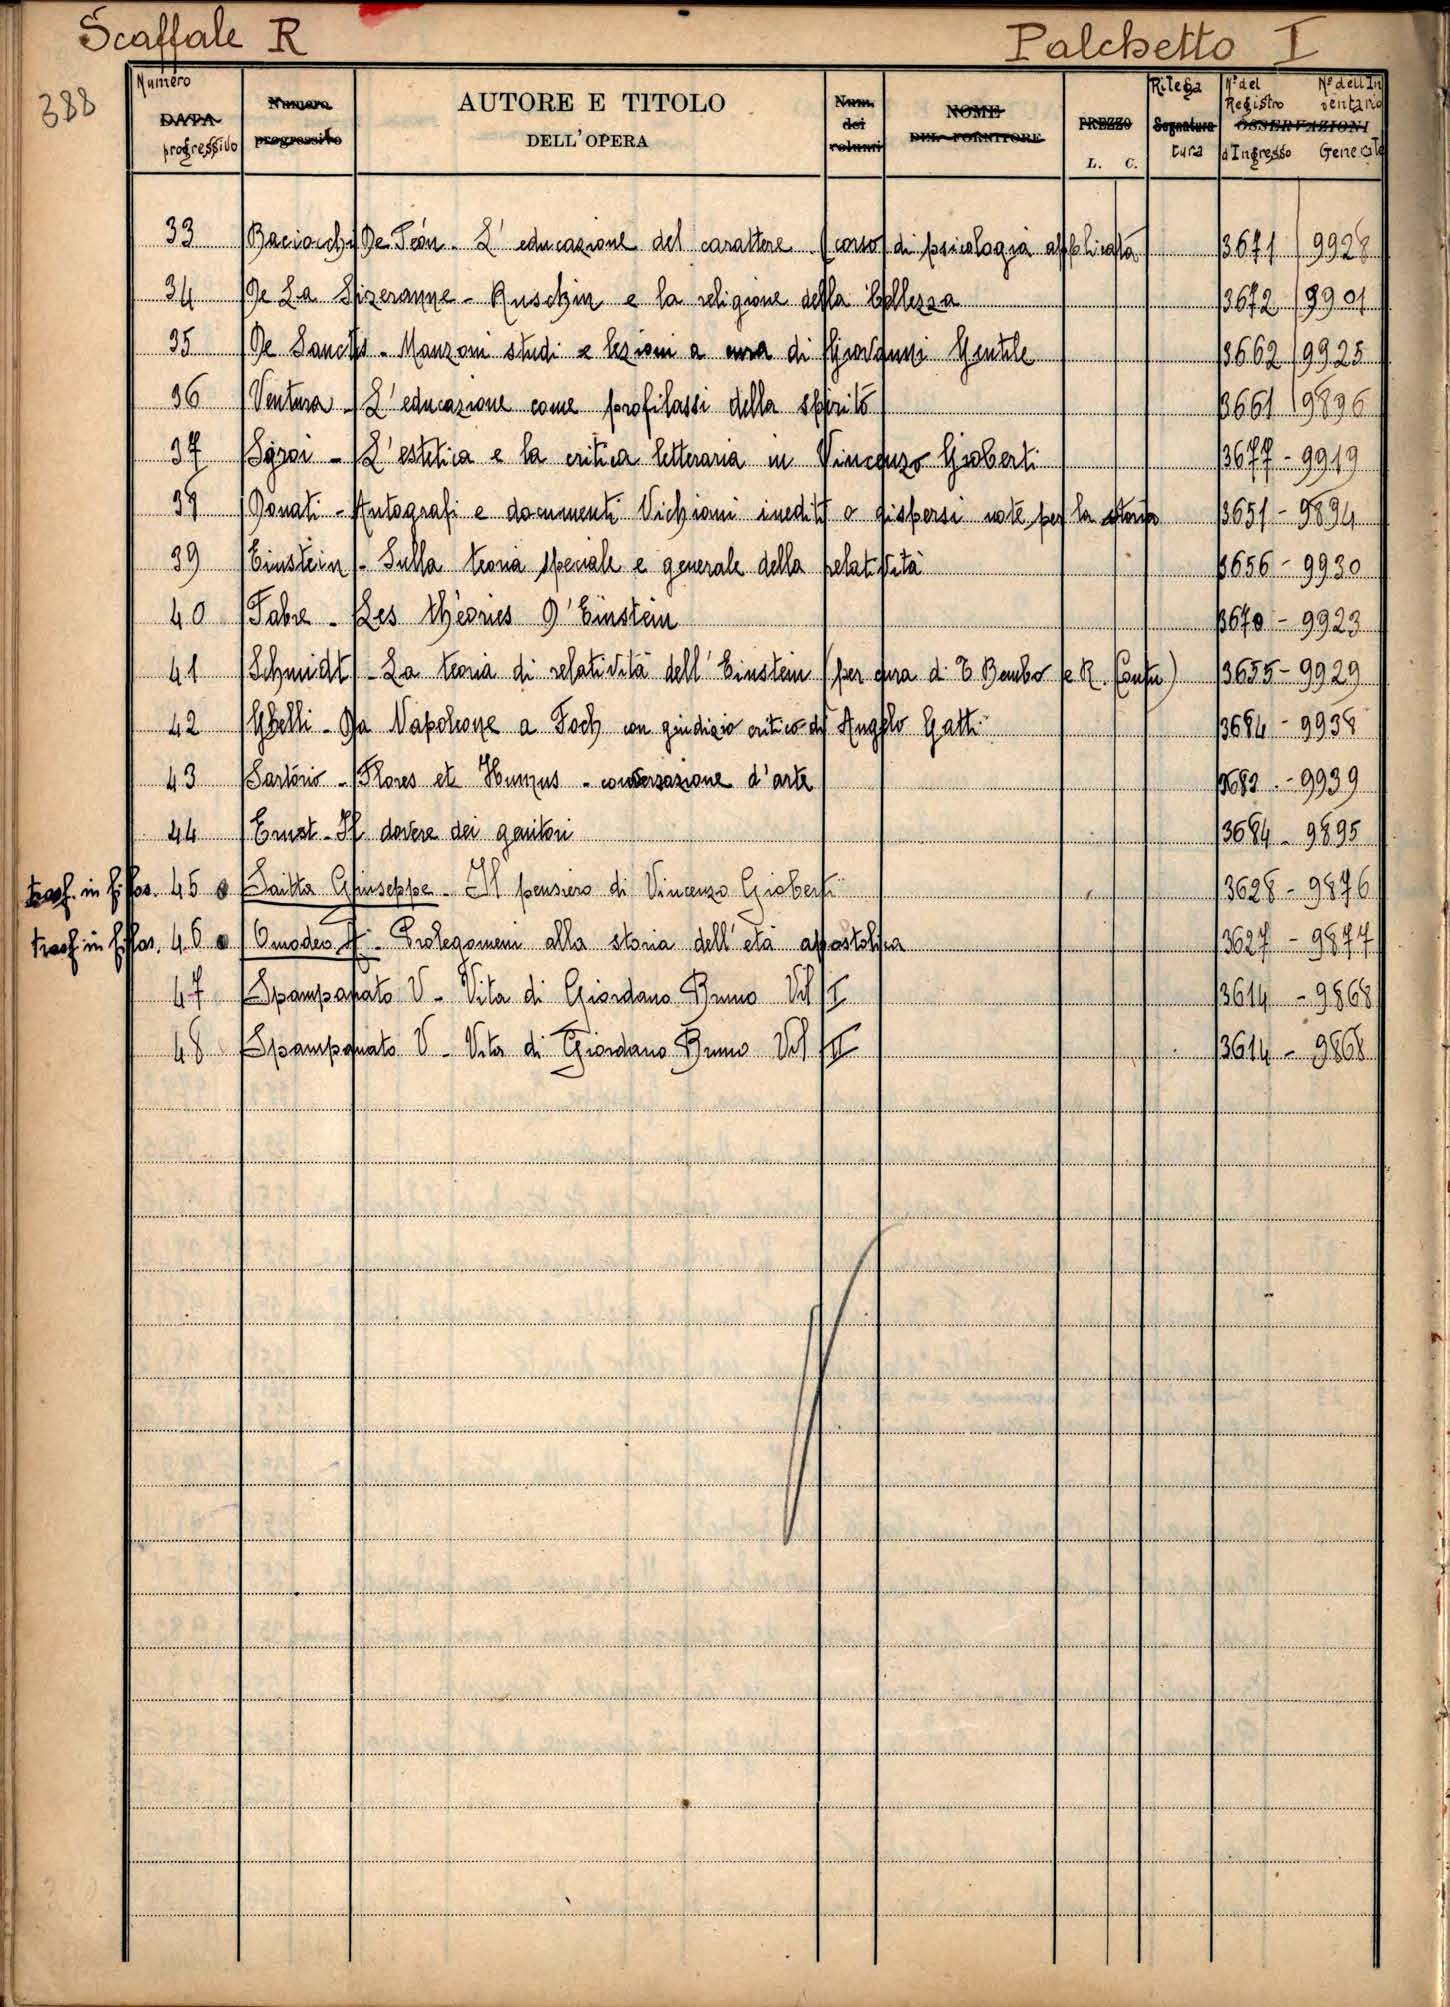 Scaffale R Palchetto I
388
Numero DATA progressivo
Numero progressivo
AUTORE E TITOLO
DELL'OPERA
Num. dei volumi
NOME DEL FORNITORE
PREZZO
L. C.
Rilega Segnatura tura
N° del Registro d'Ingresso
OSSERVAZIONI
N° dell'Inventario Generale
33 Baciocchi De Peón - L'educazione del carattere (corso di psicologia applicata 3671 9928
34 De La Sizeranne - Ruschin e la religione della bellezza 3672 9901
35 De Sanctis - Manzoni studi e lezioni a cura di Giovanni Gentile 3662 9925
36 Ventura - L'educazione come profilassi della spirito 3661 9896
37 Sgroi - L'estetica e la critica letteraria in Vincenzo Gioberti 3677 - 9919
38 Donati - Autografi e documenti Vichiani inediti o dispersi note per la storia 3651 - 9894
39 Einstein - Sulla teoria speciale e generale della relatività 3656 - 9930
40 Fabre - Les théories D'Einstein 3670 - 9923
41 Schmidt - La teoria di relatività dell'Einstein (per cura di E Bembo e R. Contu) 3655 - 9929
42 Ghelli - Da Napoleone a Foch con giudizio critico di Angelo Gatti 3684 - 9938
43 Sartorio - Flores et Humus - conversazione d'arte 3682 - 9939
44 Ernst - Il dovere dei genitori 3684 - 9895
trasf. in filos. 45 Saitta Giuseppe - Il pensiero di Vincenzo Gioberti 3628 - 9876
trasf. in filos. 46 Omodeo A. - Prolegomeni alla storia dell'età apostolica 3627 - 9877
47 Spampanato V - Vita di Giordano Bruno Vol I 3614 - 9868
48 Spampanato V - Vita di Giordano Bruno Vol II 3614 - 9868